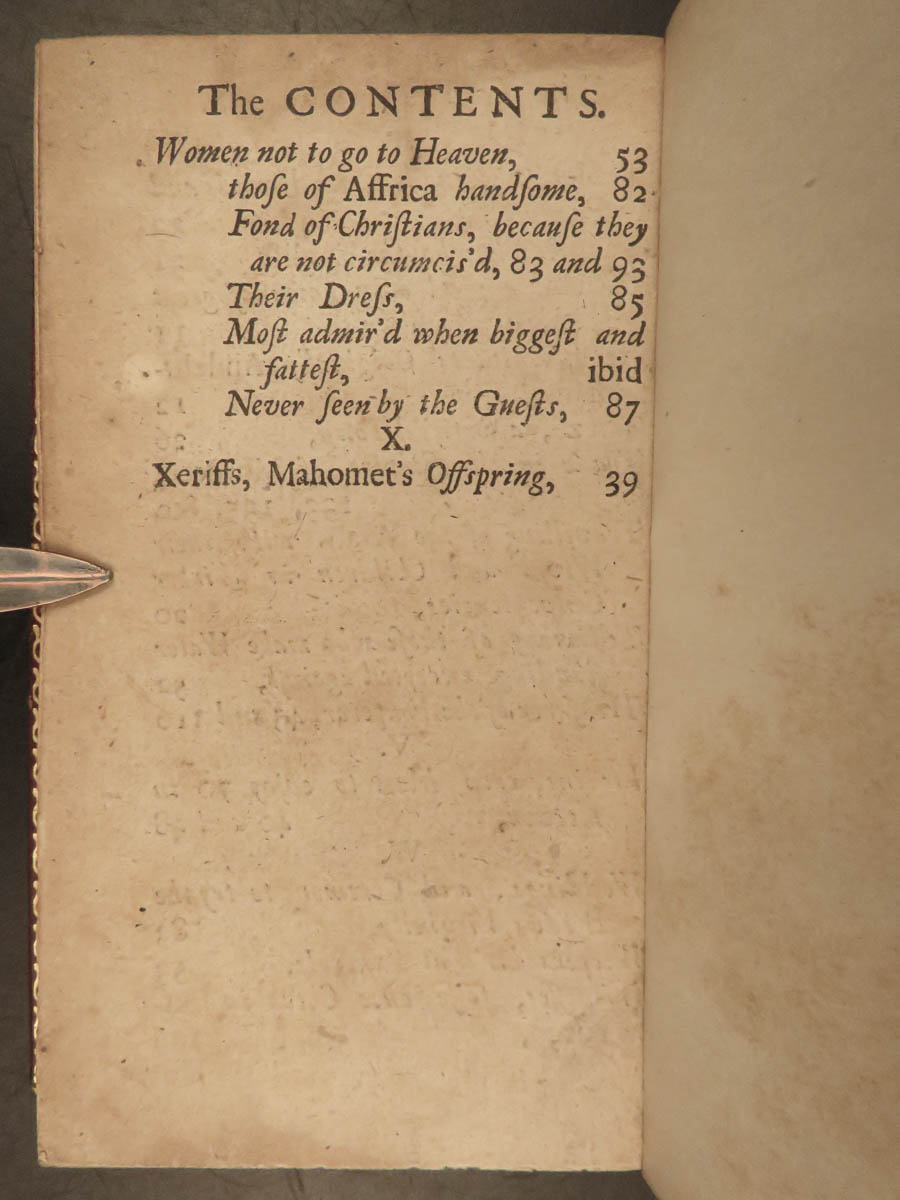 The CONTENTS.
Women not to go to Heaven, 53
thoſe of Affrica handſome, 82
Fond of Chriſtians, becauſe they
are not circumcis'd, 83 and 93
Their Dreſs, 85
Moſt admir'd when biggeſt and
fatteſt, ibid
Never ſeen by the Gueſts, 87
X.
Xeriffs, Mahomet's Offspring, 39